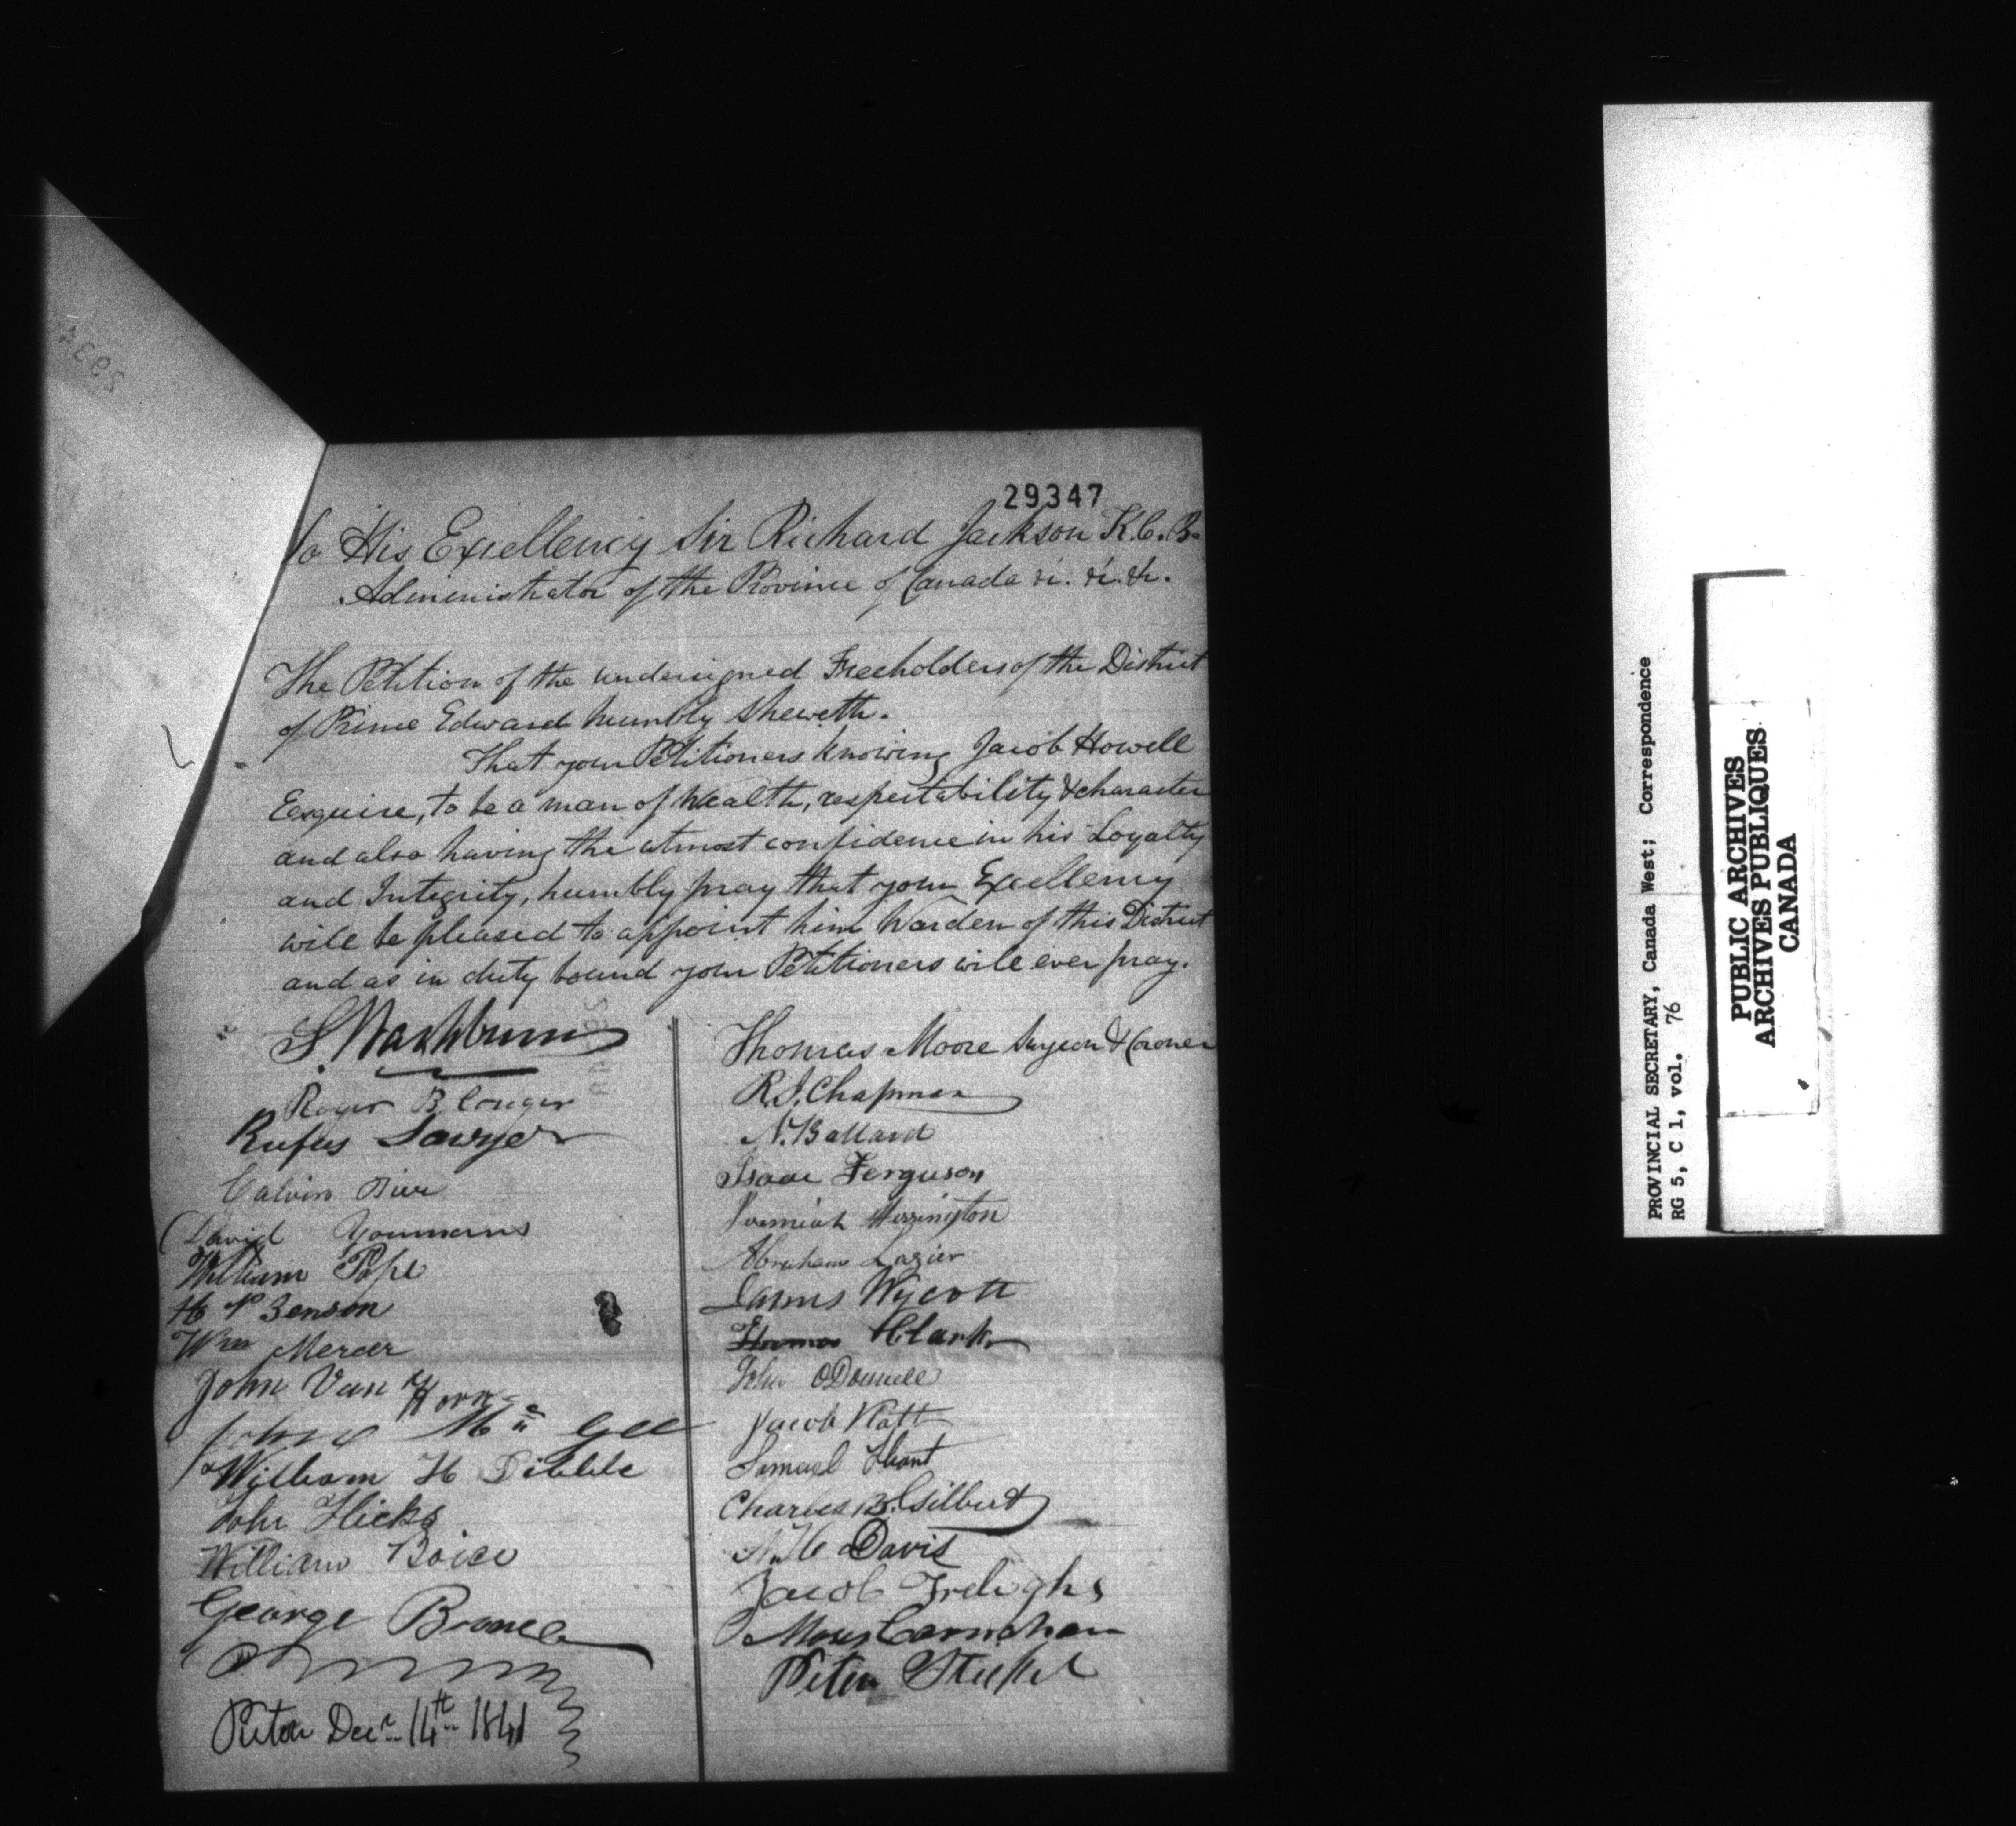 29347
To His Excellency Sir Richard Jackson K.C.B.
Administrator of the Province of Canada &c. &c. &c.
The Petition of the undersigned Freeholders of the District
of Prince Edward humbly Sheweth.
That your Petitioners knowing Jacob Howell
Esquire, to be a man of Wealth, respectability & character
and also having the utmost confidence in his Loyalty
and Integrity, humbly pray that your Excellency
will be pleased to appoint him Warden of this District
and as in duty bound your Petitioners will ever pray.
S. Washburn
Roger B Conger
Rufus Sawyer
Calvin Pier
David Youmans
William Pope
H N Benson
Wm Mercer
John Van Horn
Mc Gee
William H Dibble
John Hicks
William Boice
George
Picton Decr 14th 1841
Thomas Moore Surgeon & Coroner
R.J. Chapman
N. Ballard
Isaac Ferguson
Jeremiah Herrington
Abraham Lazier
James Wycott
Clark
John O'Donnell
Jacob Platt
Samuel
Charles B. Gilbert
N. H Davis
Jacob
Moses Carnahan
Peter
PROVINCIAL SECRETARY, Canada West; Correspondence
RG 5, C 1, vol. 76
PUBLIC ARCHIVES
ARCHIVES PUBLIQUES
CANADA